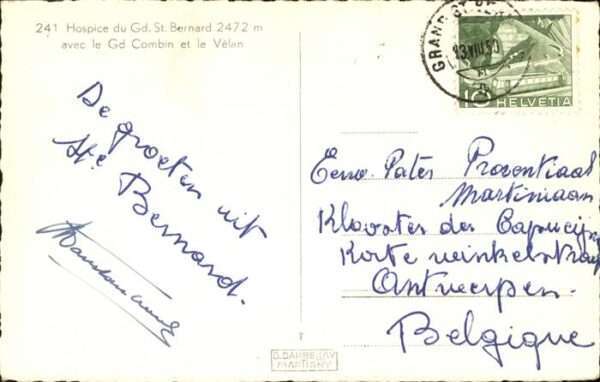 241 Hospice du Gd. St. Bernard 2472 m
avec le Gd Combin et le Vélan
GRAND ST. BE
23.VIII.50
10 HELVETIA
De groeten uit
Ste Bernard.
Eerw. Pater Proventiaal
Martiniaan
Klooster der Capucij
Korte winkelstraa
Antwerpen.
Belgique
O. DARBELLAY
MARTIGNY